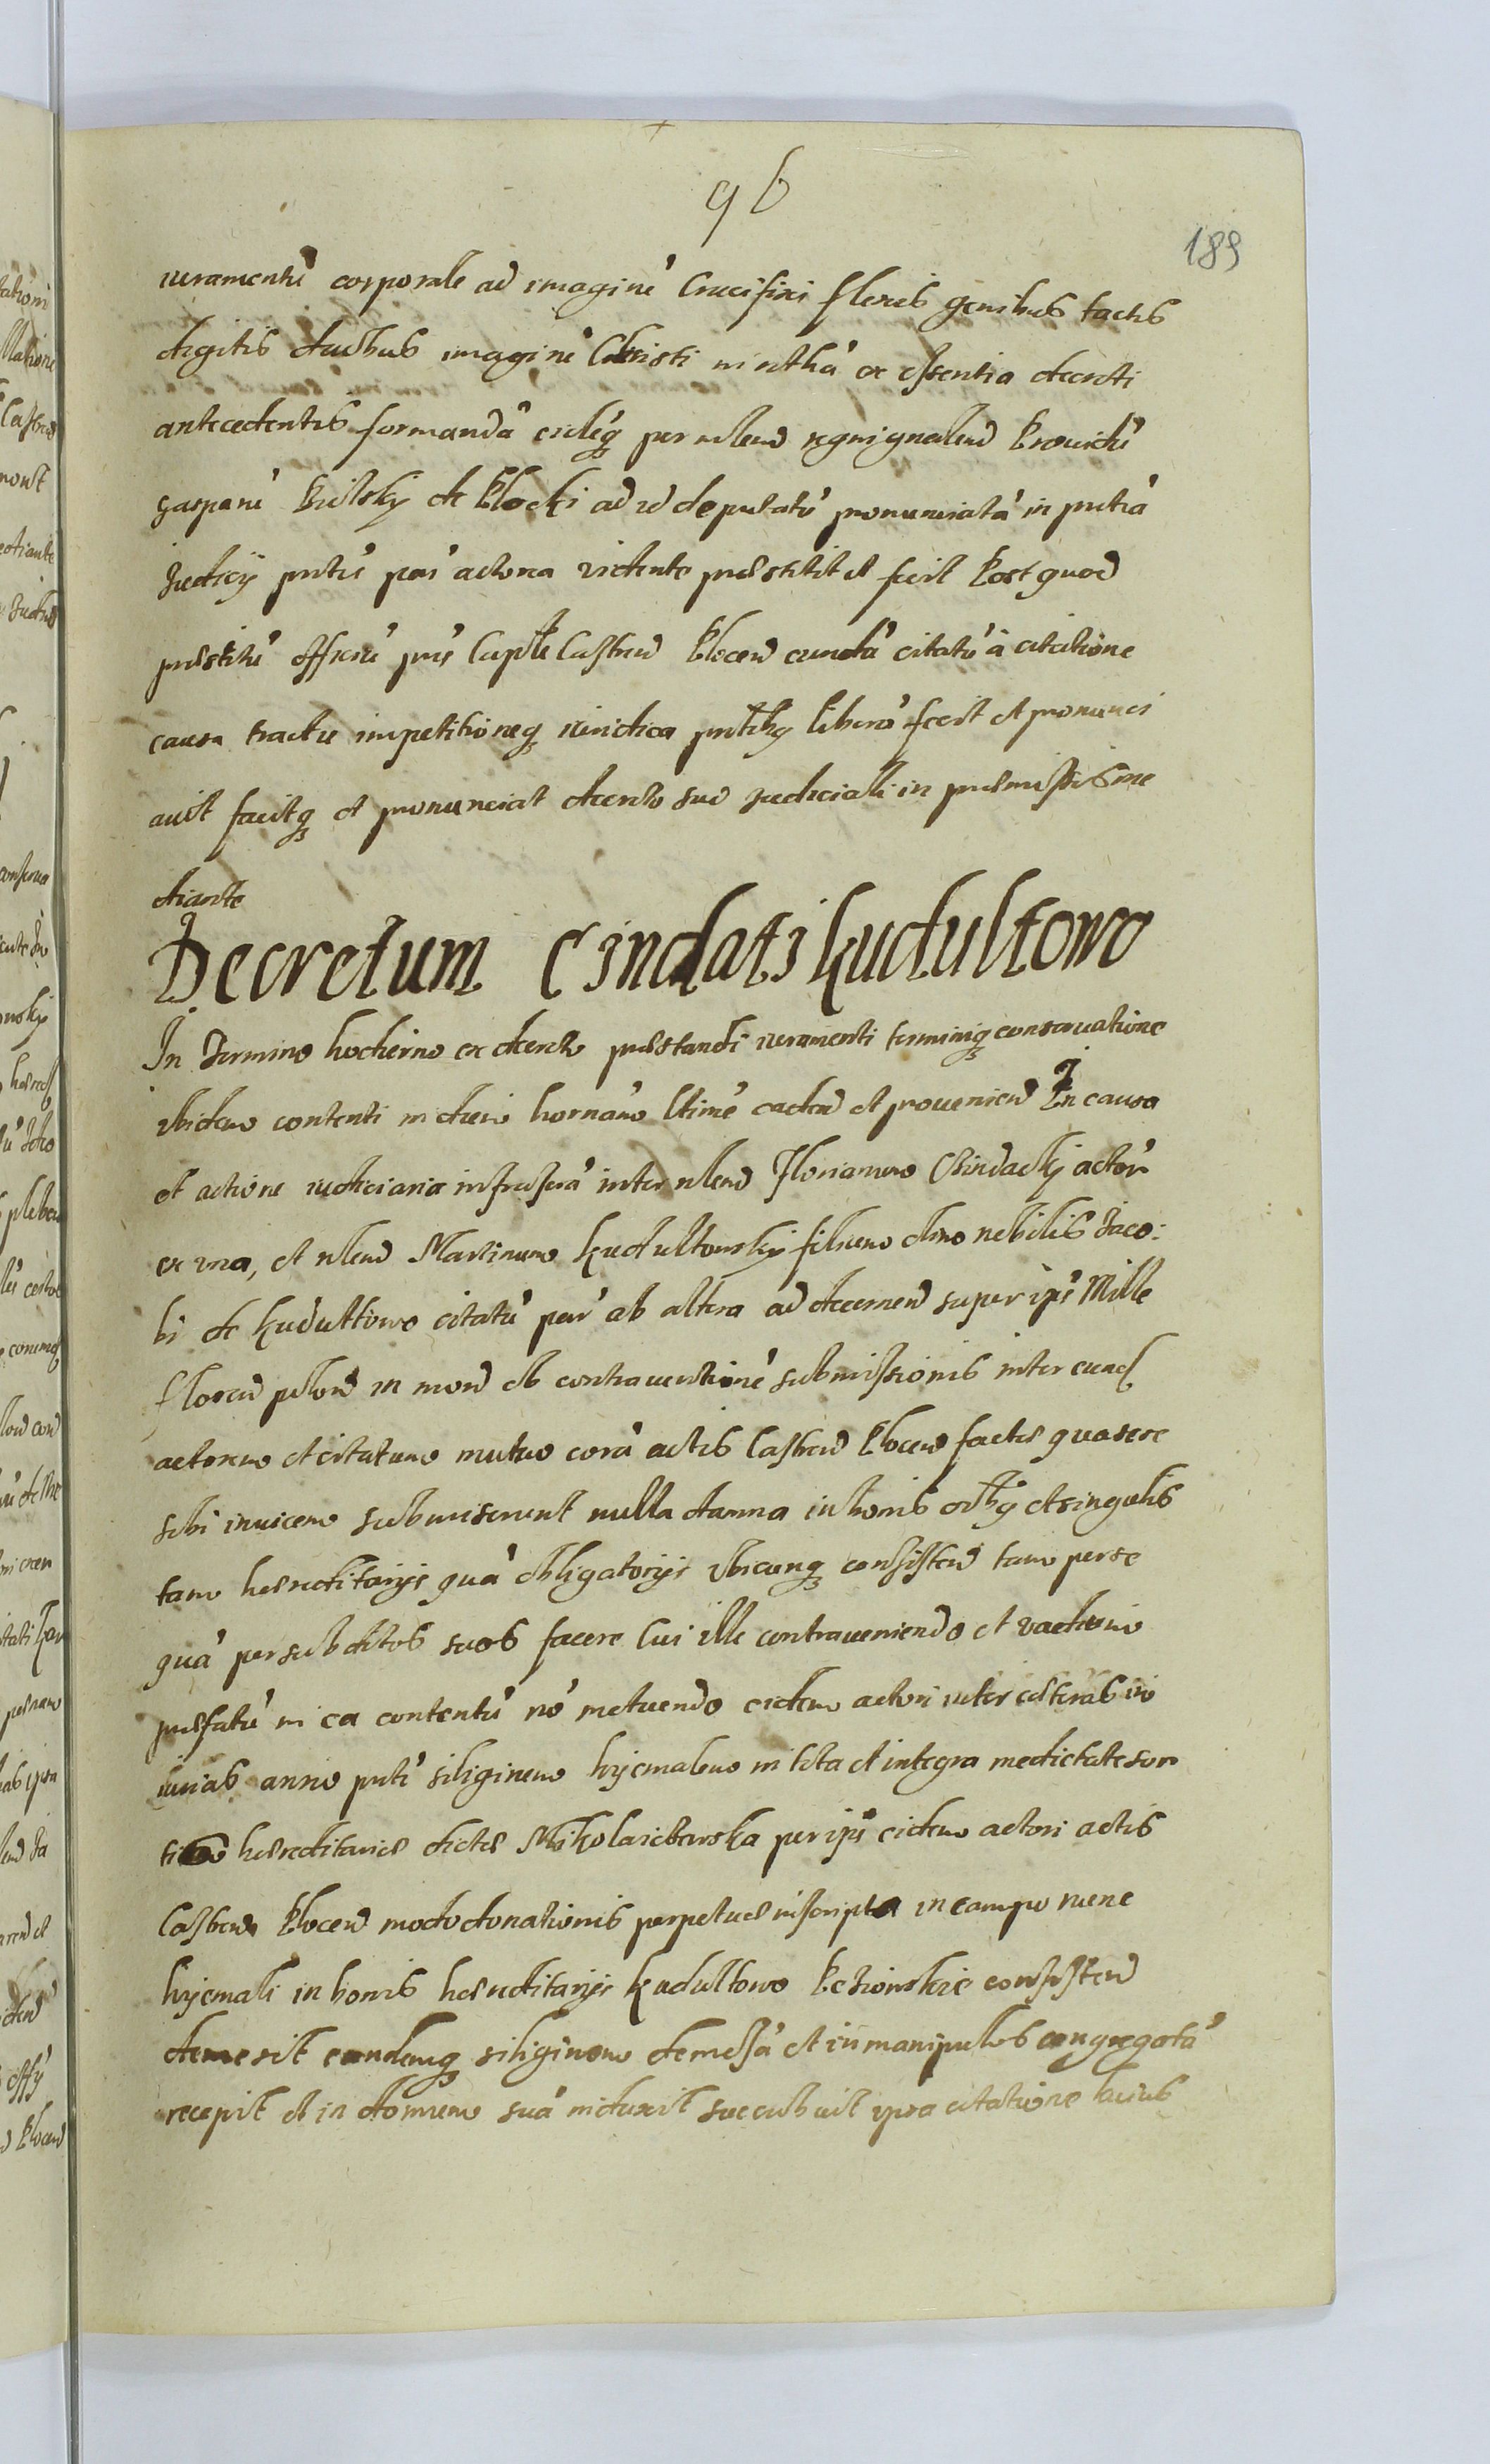 96
189
iuramentũ corporale ad imaginẽ Crucifixi flexis genibus tactis
digitis duobus imaginẽ Christi in rothã ex essentia decreti
antecedentis formandã eidẽq per nlem regni gnalem Prouidũ
Gasparũ Bielsky de Plocki ad id deputatũ pronunciatã in pntia
Judicij pntis par' actorea vidente praestitit et fecit Postquod
praestitũ officiũ pns Capit Castren Plocen eundẽ citatũ à citatione
causa tractu impetitioneq iuridica pntibq liberũ fecit et pronunci
auit facitq et pronunciat decreto suo judiciali in praemissis me
diante
Decretum Cindati Kudultowo
In Termino hodierno ex decreto praestandi iuramenti terminiq conseruatione
ibidem contenti in diem hornam ltime caden et prouenien In causa
et actione iudiciaria infrascrã inter nlem Florianum Cindacky actor'
ex vna, et nlem Martinum Kudultowsky filium olim nobilis Jaco:
bi de Kudultowo citatũ par' ab altera ad decernen super ipm Mille
floren polon in mon ob contrauentionẽ submissionis inter eund
actorem et citatum mutuo corã actis Castren Plocen factae quase re
sibi inuicem submiserunt nulla damna in bonis oibq et singulis
tam haereditarijs quã obligatorijs vbicunq consisten tam per se
quã per subditos suos facere Cui ille contraueniendo et vadium
praefatũ in ea contentũ nõ metuendo eidem actori inter caeteras in
iurias anno pnti siliginem hyemalem in tota et integra medietate sor
tium haereditariae dictae Mikolaiewska per ipm eidem actori actis
Castren Plocen modo donationis perpetuae inscripta in campo nunc
hyemali in bonis haereditarijs Kudultowo Pezionskie consisten
demesit eandemq siliginem demessã et in manipulos congregatã
recepit et in domum suã induxit succubuit ipsa citatione huius